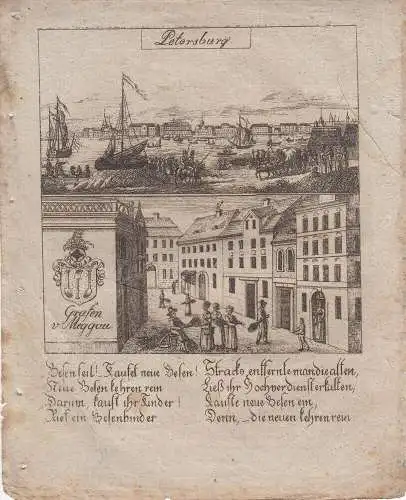 Petersburg
Grafen
v. Meggau
Besen feil! Kaufet neue Besen!
Neue Besen kehren rein
Darum, kauft ihr Kinder!
Rief ein Besenbinder
Stracks entfernte man die alten,
Ließ ihr Hochverdienst erkalten,
Kaufte neue Besen ein,
Denn, – die neuen kehren rein